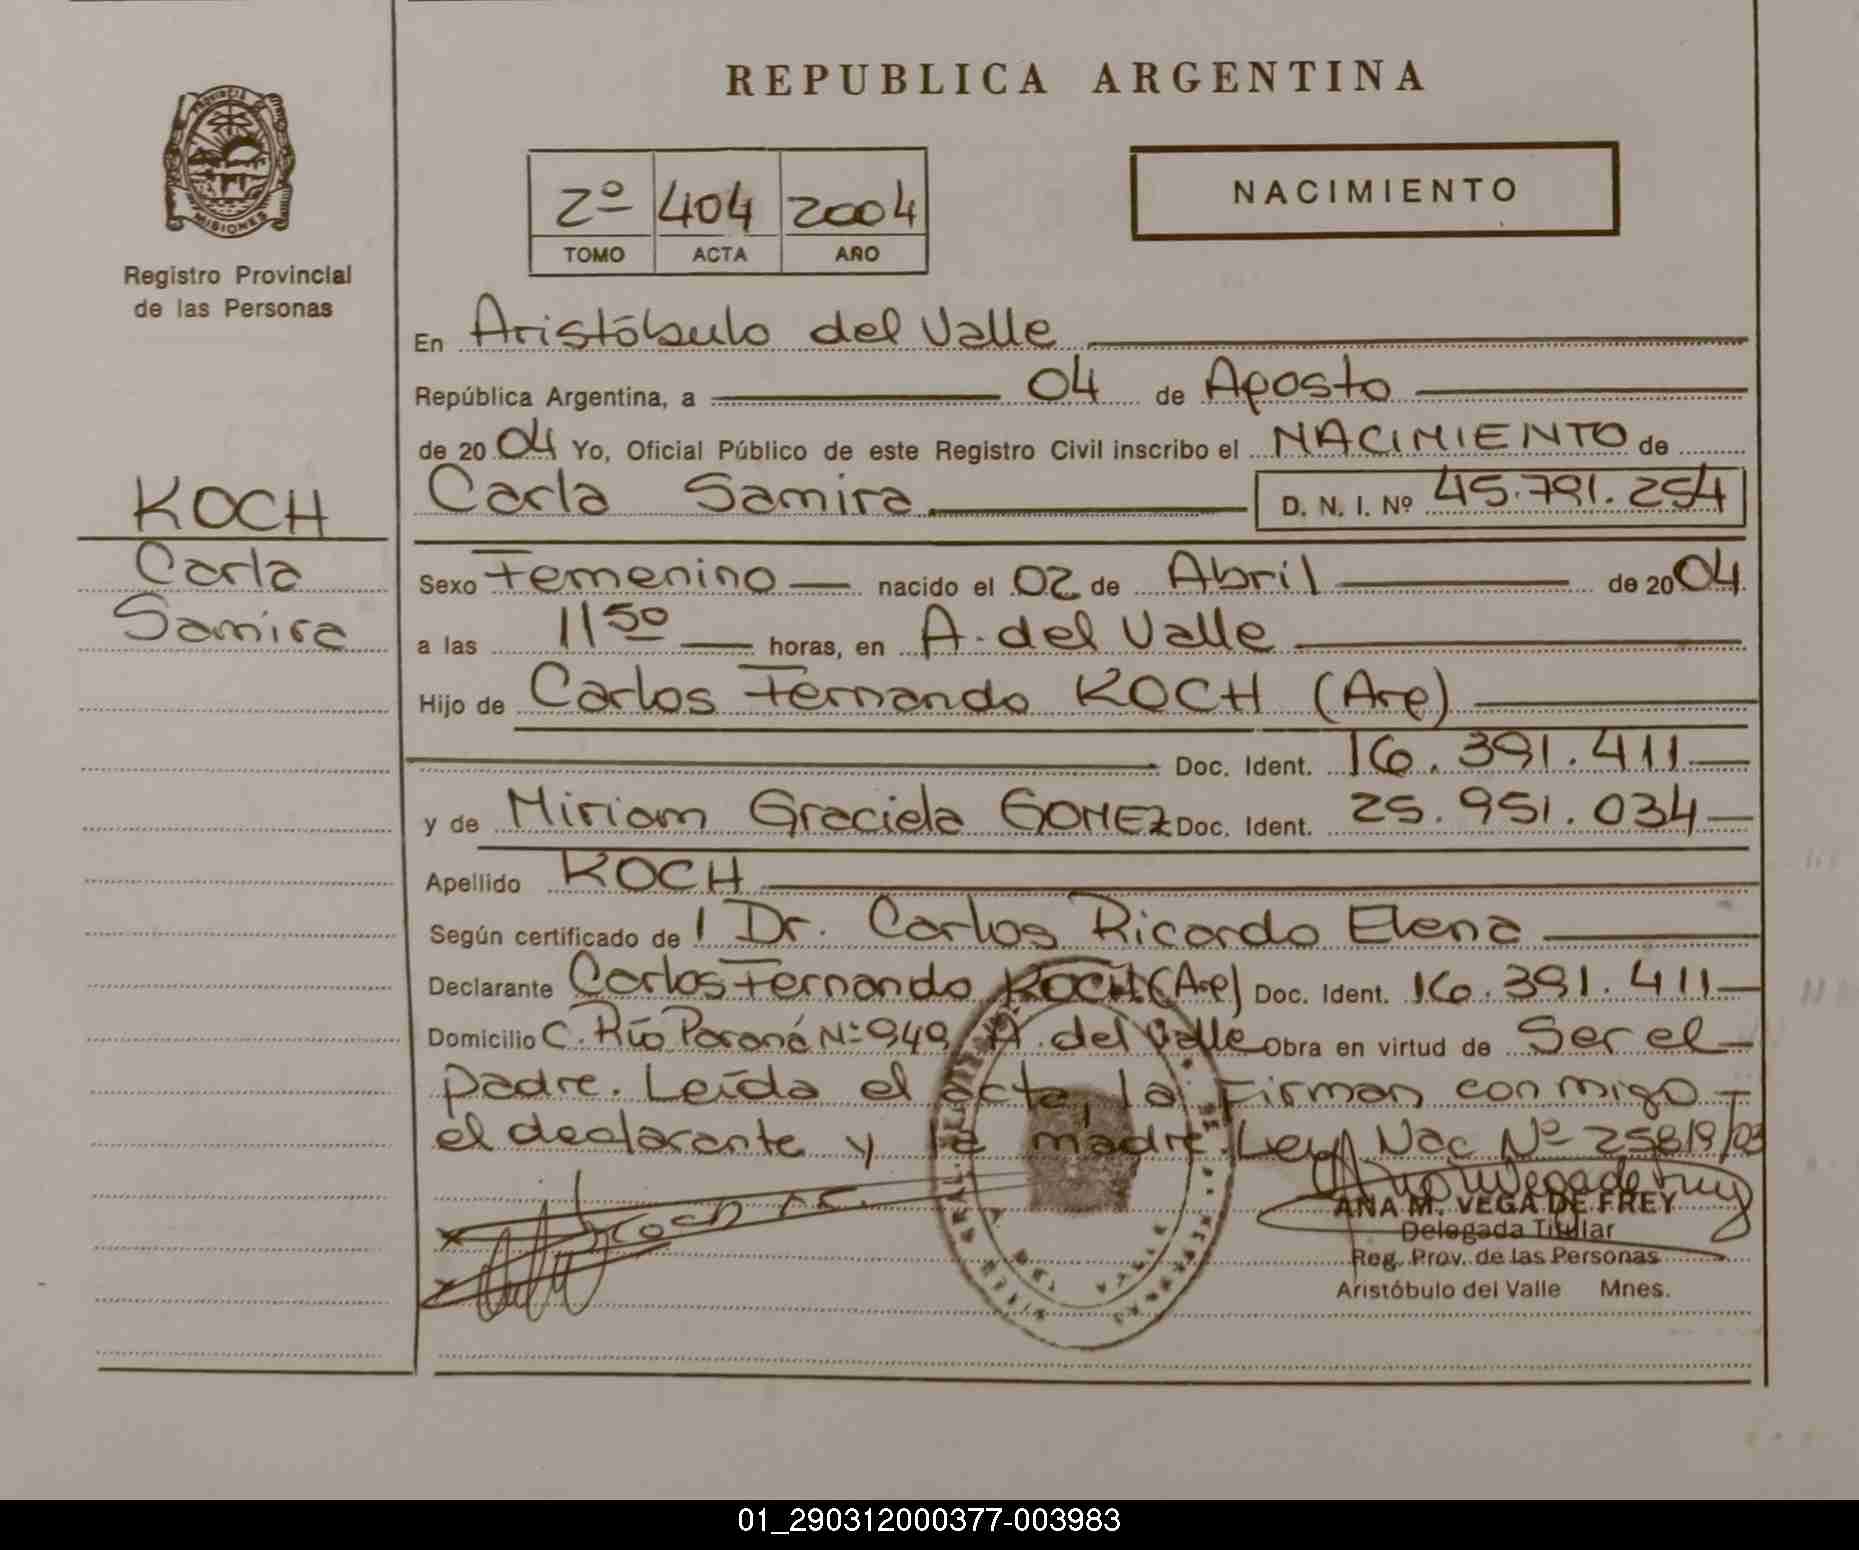 REPUBLICA ARGENTINA
PROVINCIA
MISIONES
Registro Provincial
de las Personas
2º 404 2004
TOMO ACTA AÑO
NACIMIENTO
En Aristóbulo del Valle
República Argentina, a 04 de Agosto
de 2004 Yo, Oficial Público de este Registro Civil inscribo el NACIMIENTO de
Carla Samira D. N. I. Nº 45.791.254
KOCH
Carla
Samira
Sexo Femenino nacido el 02 de Abril de 2004
a las 11 50 horas, en A. del Valle
Hijo de Carlos Fernando KOCH (Arg)
Doc. Ident. 16.391.411
y de Miriam Graciela GOMEZ Doc. Ident. 25.951.034
Apellido KOCH
Según certificado de l Dr. Carlos Ricardo Elena
Declarante Carlos Fernando KOCH (Arg) Doc. Ident. 16.391.411
Domicilio C. Río Paraná Nº 949 A. del Valle Obra en virtud de Ser el
padre. Leída el acta, la Firman conmigo
el declarante y la madre. Ley Nac Nº 25819/03
Koch
ANA M. VEGA DE FREY
Delegada Titular
Reg. Prov. de las Personas
Aristóbulo del Valle Mnes.
01_290312000377-003983